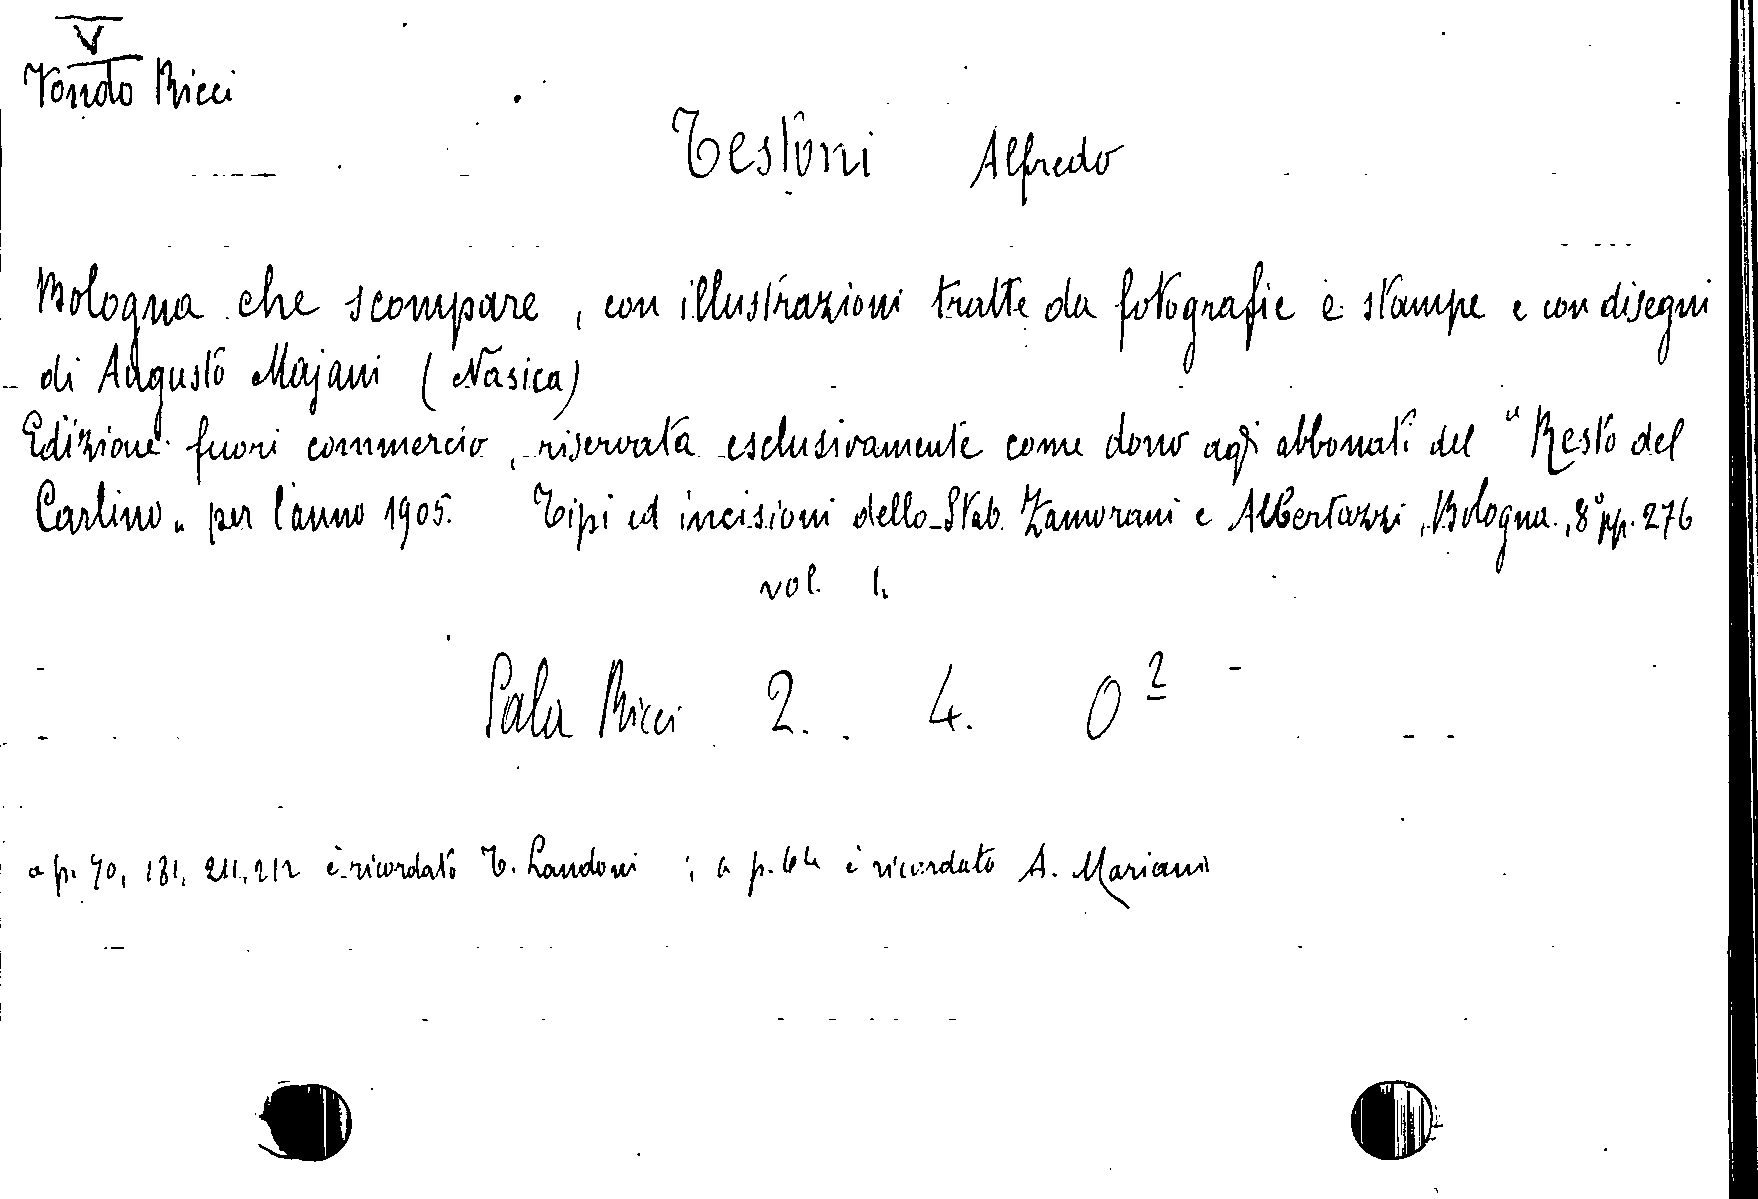 V
Fondo Ricci
Testoni Alfredo
Bologna che scompare, con illustrazioni tratte da fotografie e stampe e con disegni
di Augusto Majani (Nasica)
Edizione fuori commercio, riservata esclusivamente come dono agli abbonati del "Resto del
Carlino" per l'anno 1905. Tipi ed incisioni dello Stab. Zamorani e Albertazzi, Bologna, 8° pp. 276
vol. 1.
Sala Ricci 2. 4. O 2
a p. 70, 181, 211, 212 è ricordato T. Landoni ; a p. 64 è ricordato A. Mariani